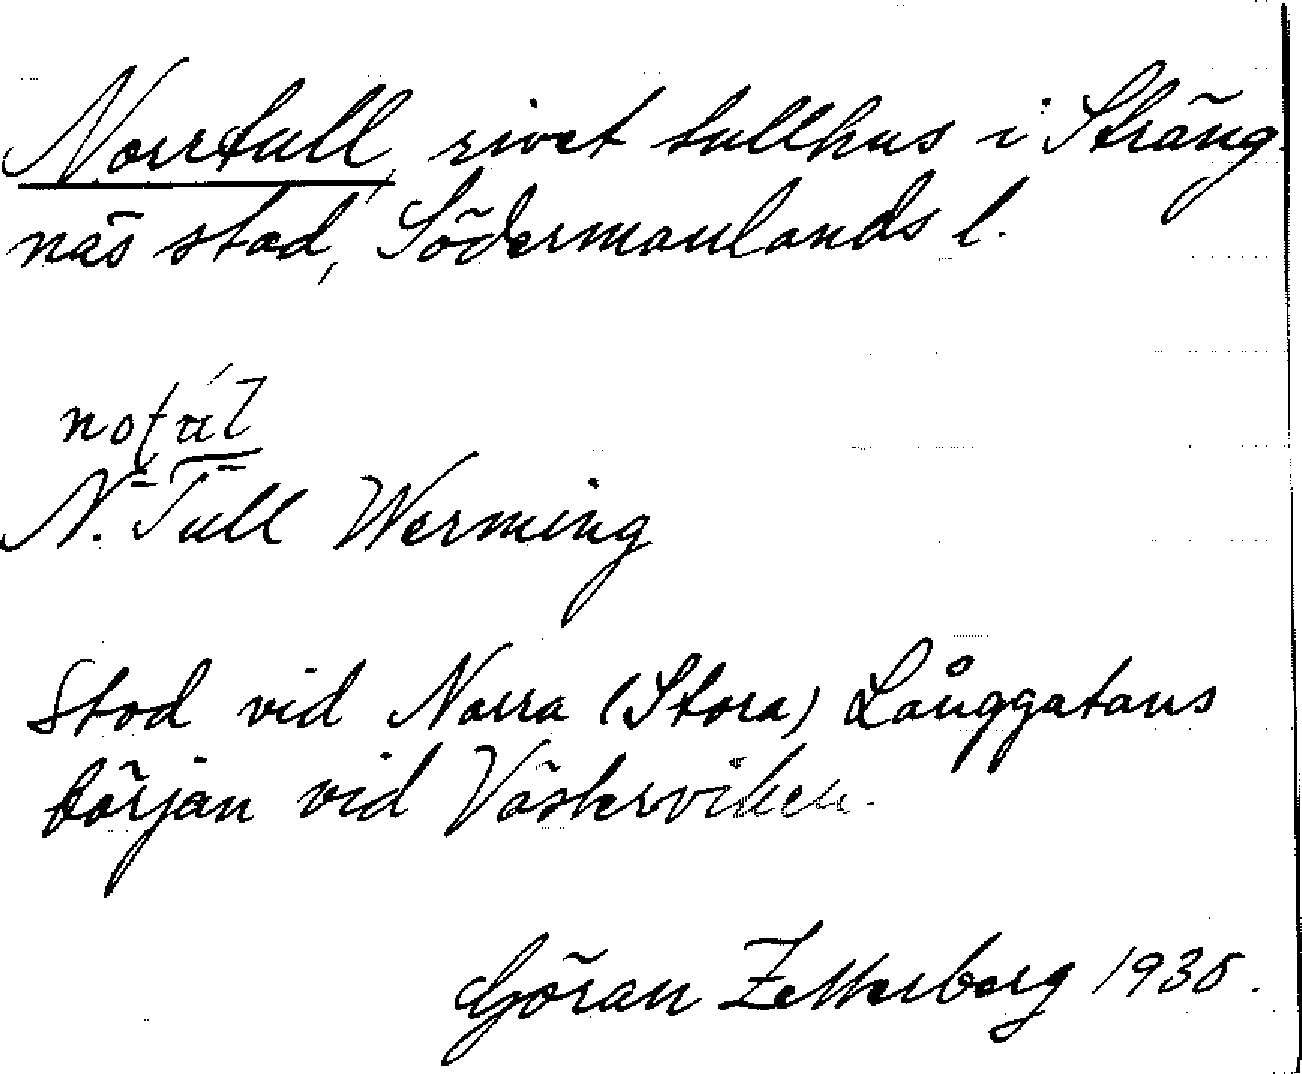 Norrtull, rivet tullhus i Sträng-
näs stad, Södermanlands l.
N. Tull Werming
Stod vid Norra (Stora) Långgatans
början vid Västerviken.
Göran Zetterberg 1935.